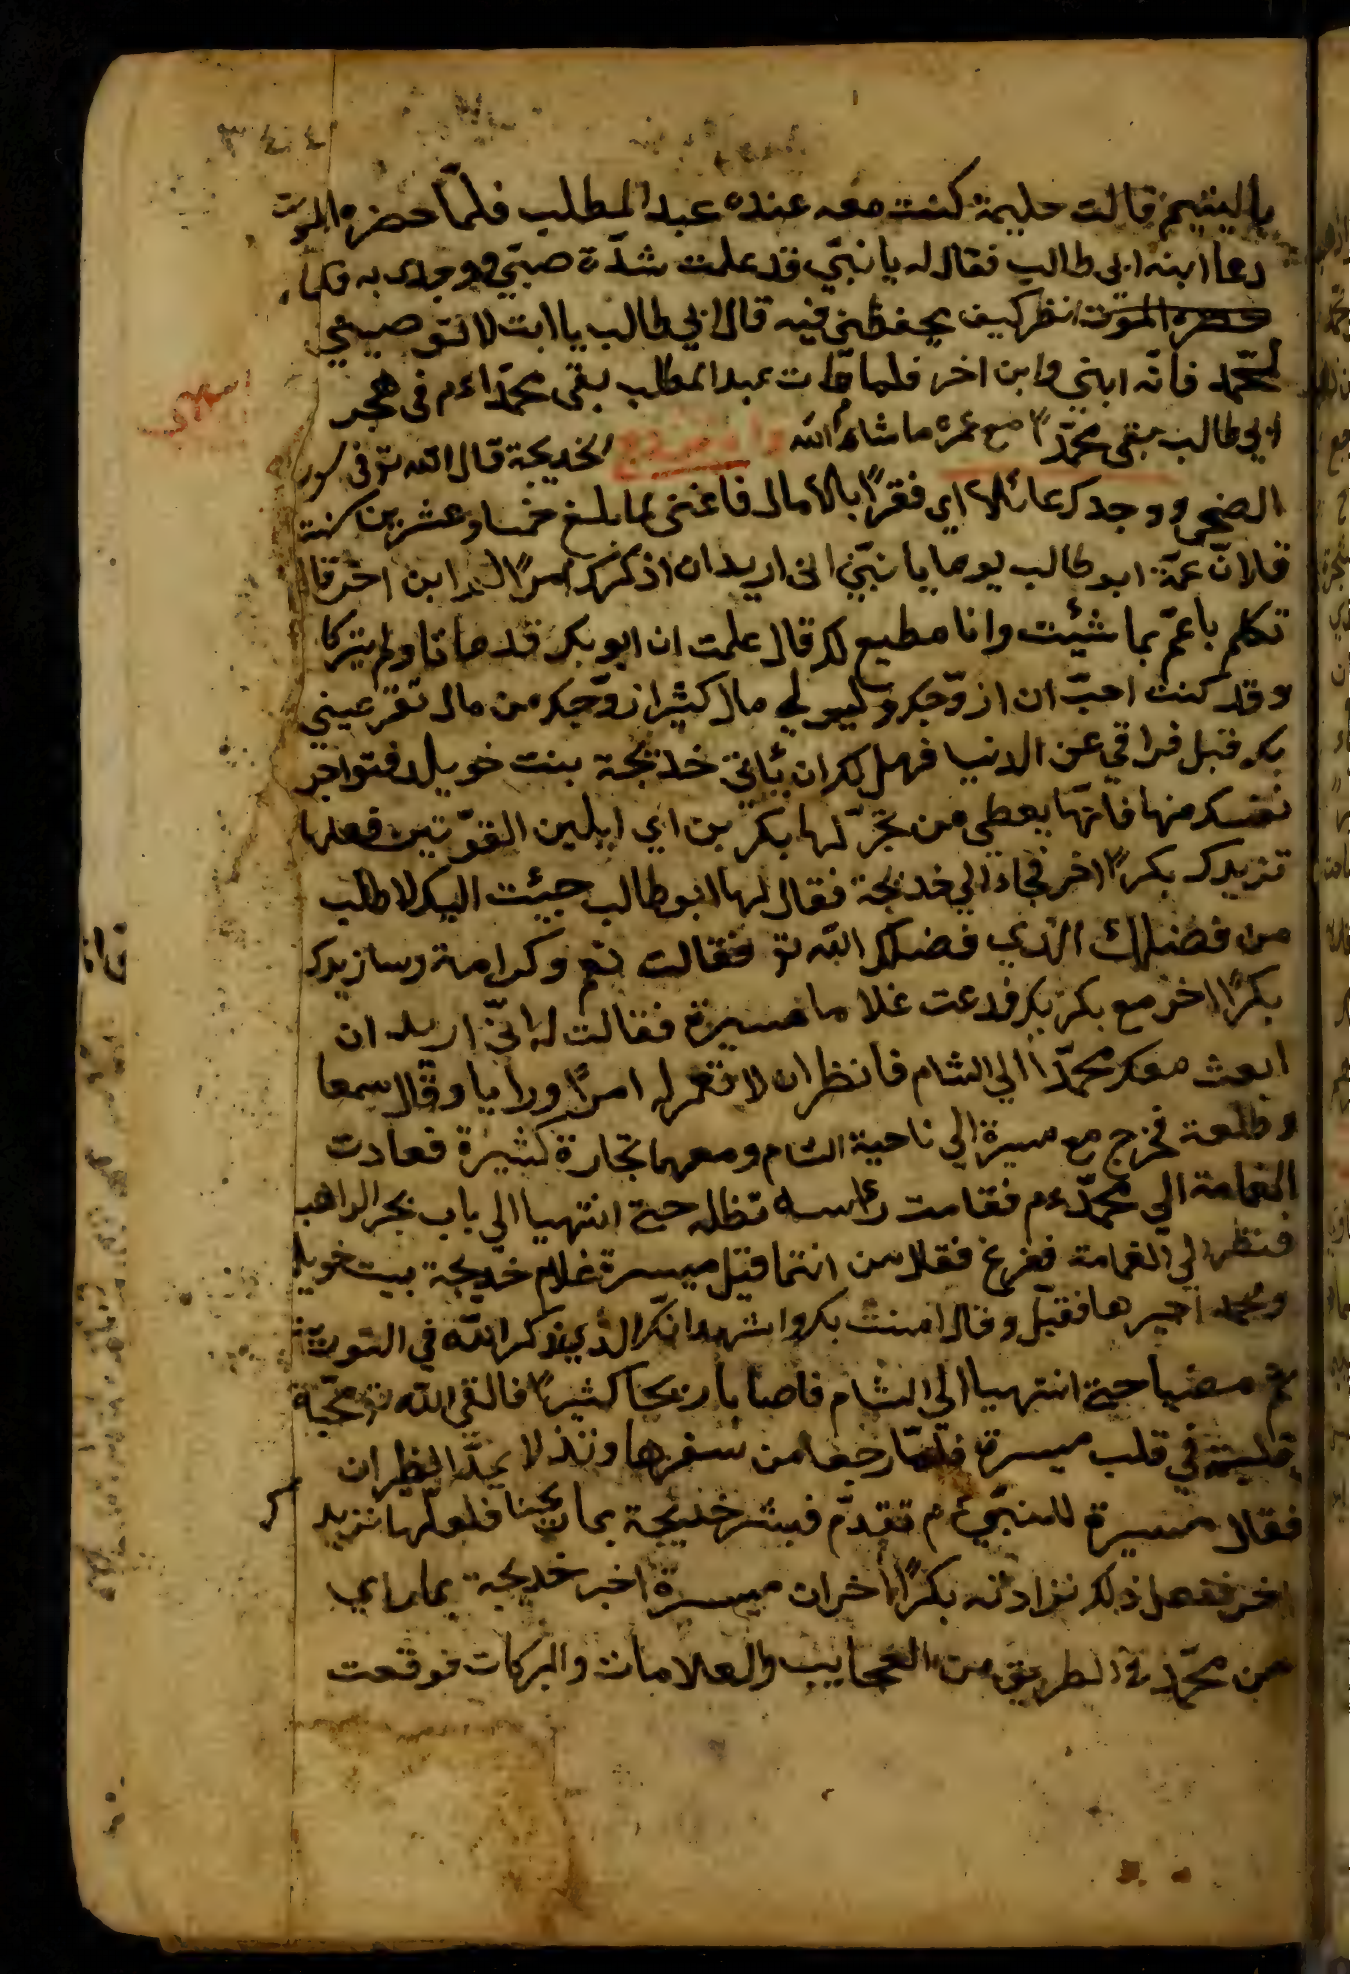 باليتيم قالت حليمة كنت معه عنده عبد المطلب فلمّا حضره الموت
دعا ابنه ابي طالب فقال له يا نبّي قد علمت شدّة صبّي ووجدى به
حضره الموت انظر كيف يحفظني فيه قال ابي طالب يا ابت لا توصيني
لمحمّد فانّه ابني وابن اخر فلما مات عبد المطلب بقى محمّدا ءم في هجر
ابي طالب بقى محمّدًا مع عمره ما شاء الله لخديجة قال الله تو فى سور
الضحى ووجدك عائلا اي فقرًا بالامال فاغنى لما بلغ خمسا وعشرين سنة
قال انّ عمّه ابو طالب يوما يا نبّي انى اريد ان اذكرك امرًا ابن اخر قا
تكلم يا عمّ بما شئت وانا مطيع لك قال علمت ان ابو بكر قد ماتا ولم يتركا
وقد كنت احبّ ان ازوّجك وليو لي مال كثير ازوّجك من مال تقر عيني
بك قبل فراقي عن الدنيا فهل لك ان يأتي خديجة بنت خويلد فتواجر
نفسك منها فانّها يعطي من تجّر لها بكر بن اي ابلين القوّتين فعلها
تزيدك بكرًا اخر فجاء الي خديجة فقال لها ابو طالب جيئت اليك لاطلب
من فضلك الذي فضلك الله تو فقالت نعم وكرامة وسازيدك
بكرًا اخر مع بكر بكر فدعت غلاما مسيرة فقالت له انّي اريد ان
ابعث معك محمّدا الي الشام فانظر ان لا تعمر له امرًا ورايا وقال سمعا
وطلعة فخرج مع ميسرة الي ناحية الشام ومعهما تجارة كثيرة فعادت
الغمامة الي محمّد ءم فقامت رئاسه تظله حتى انتهيا الي باب بحر الراهب
فنظر الي الغمامة ففزع فقال من انتما قيل ميسرة غلام خديجة بيت خويلد
ومحمد اجيرها فقبّل وقال امنت بك واشهد انّك الذي يذكر الله في التورة
ثم مضيا حتى انتهيا الي الشام فاصابا ربحا كثيرًا فالقي الله تو محبّة
في قلب ميسرة فلمّا رجعا من سفرها ونذلا بمرّ الظهران
فقال مسيرة للنبّي ءم تقدّم فبشر خديجة بما ربحنا فلعلّها تزيد ك
اخر ففعل ذلك فزادته بكرًا اخر ان ميسرة اخبر خديجة بما راي
من محمّد في الطريق من العجايب والعلامات والبركات فوقعت